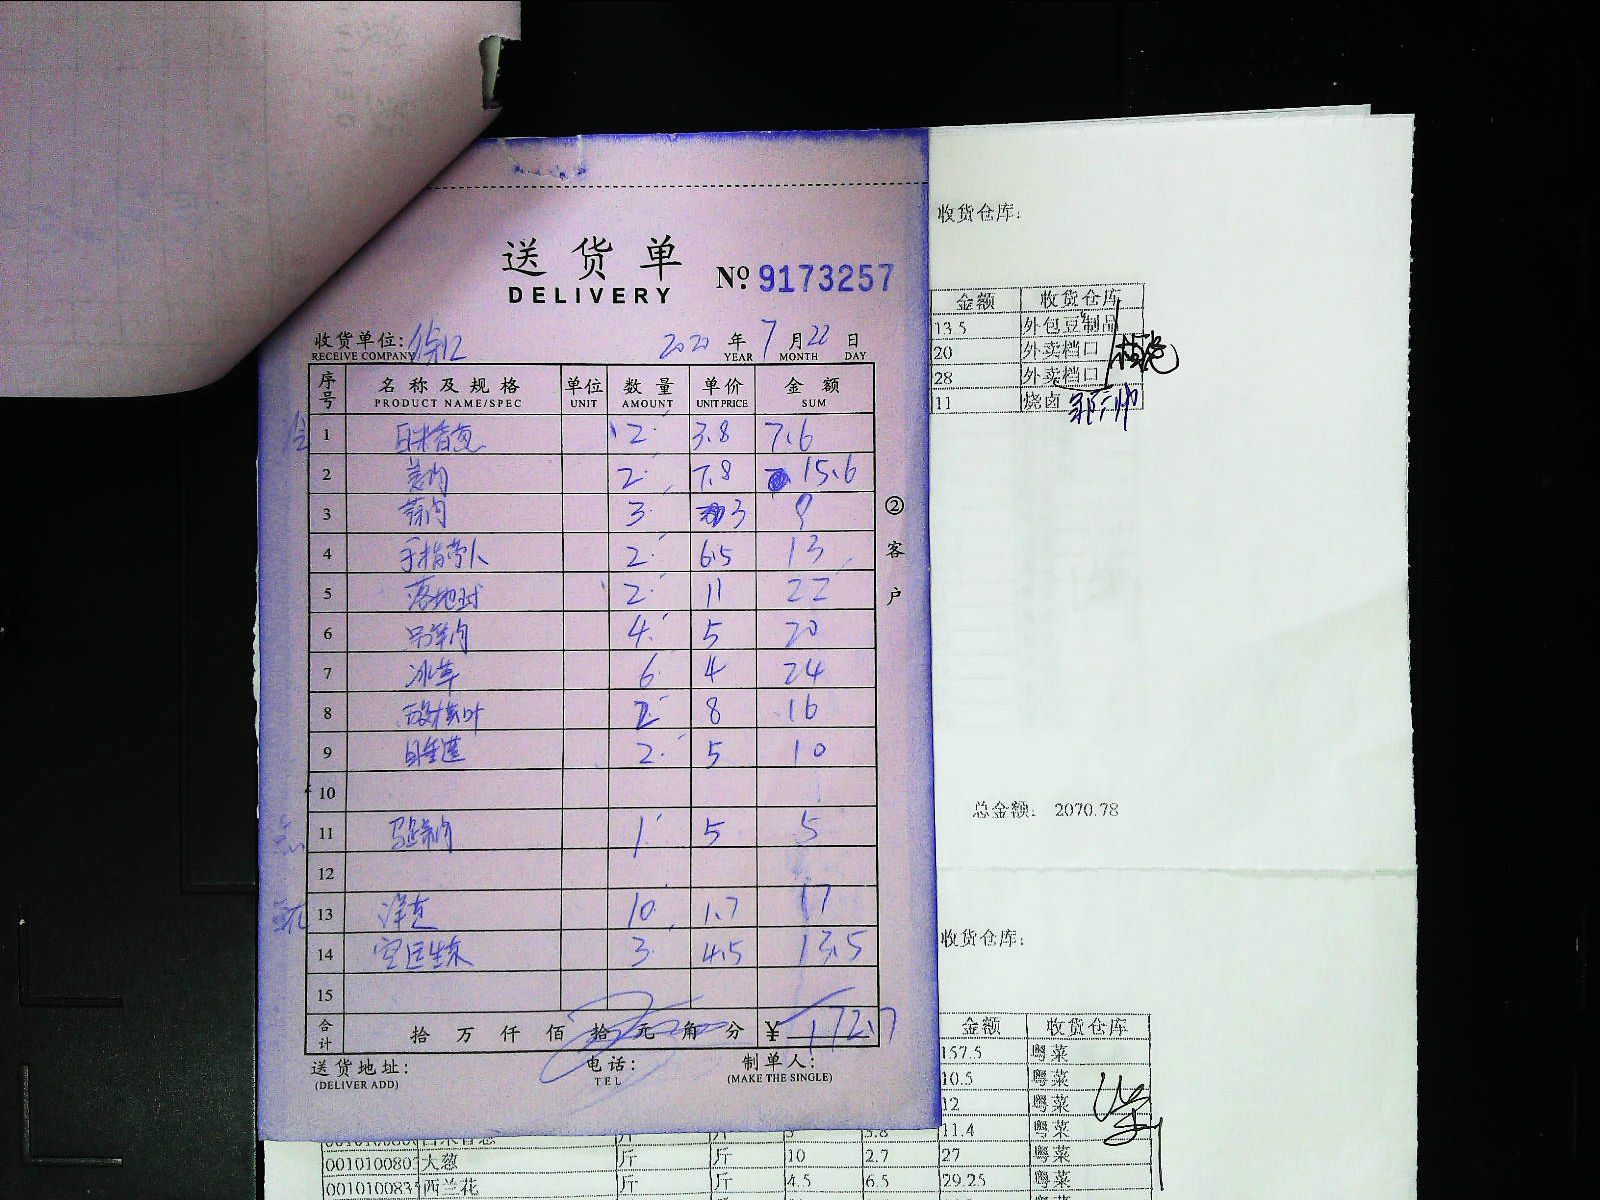 送货单
DELIVERY
№ 9173257
收货单位:
RECEIVE COMPANY
2020 年 7 月 22 日
YEAR MONTH DAY
序号 名称及规格 单位 数量 单价 金额
PRODUCT NAME/SPEC UNIT AMOUNT UNIT PRICE SUM
1 白米香葱 2 3.8 7.6
2 姜肉 2 7.8 15.6
3 蒜肉 3 3 9
4 手指萝卜 2 6.5 13
5 落地球 2 11 22
6 4 5 20
7 冰草 6 4 24
8 2 8 16
9 2 5 10
10
11 马蹄肉 1 5 5
12
13 洋葱 10 1.7 17
14 生菜 3 4.5 13.5
15
合计 拾 万 仟 佰 拾 元 角 分 ¥ 172.7
送货地址: 电话: 制单人:
(DELIVER ADD) TEL (MAKE THE SINGLE)
②客户
收货仓库:
金额 收货仓库
13.5 外包豆制品
20 外卖档口
28 外卖档口
11 烧卤
总金额: 2070.78
收货仓库:
金额 收货仓库
157.5 粤菜
10.5 粤菜
12 粤菜
3.8 11.4 粤菜
大葱 斤 斤 10 2.7 27 粤菜
西兰花 斤 斤 4.5 6.5 29.25 粤菜